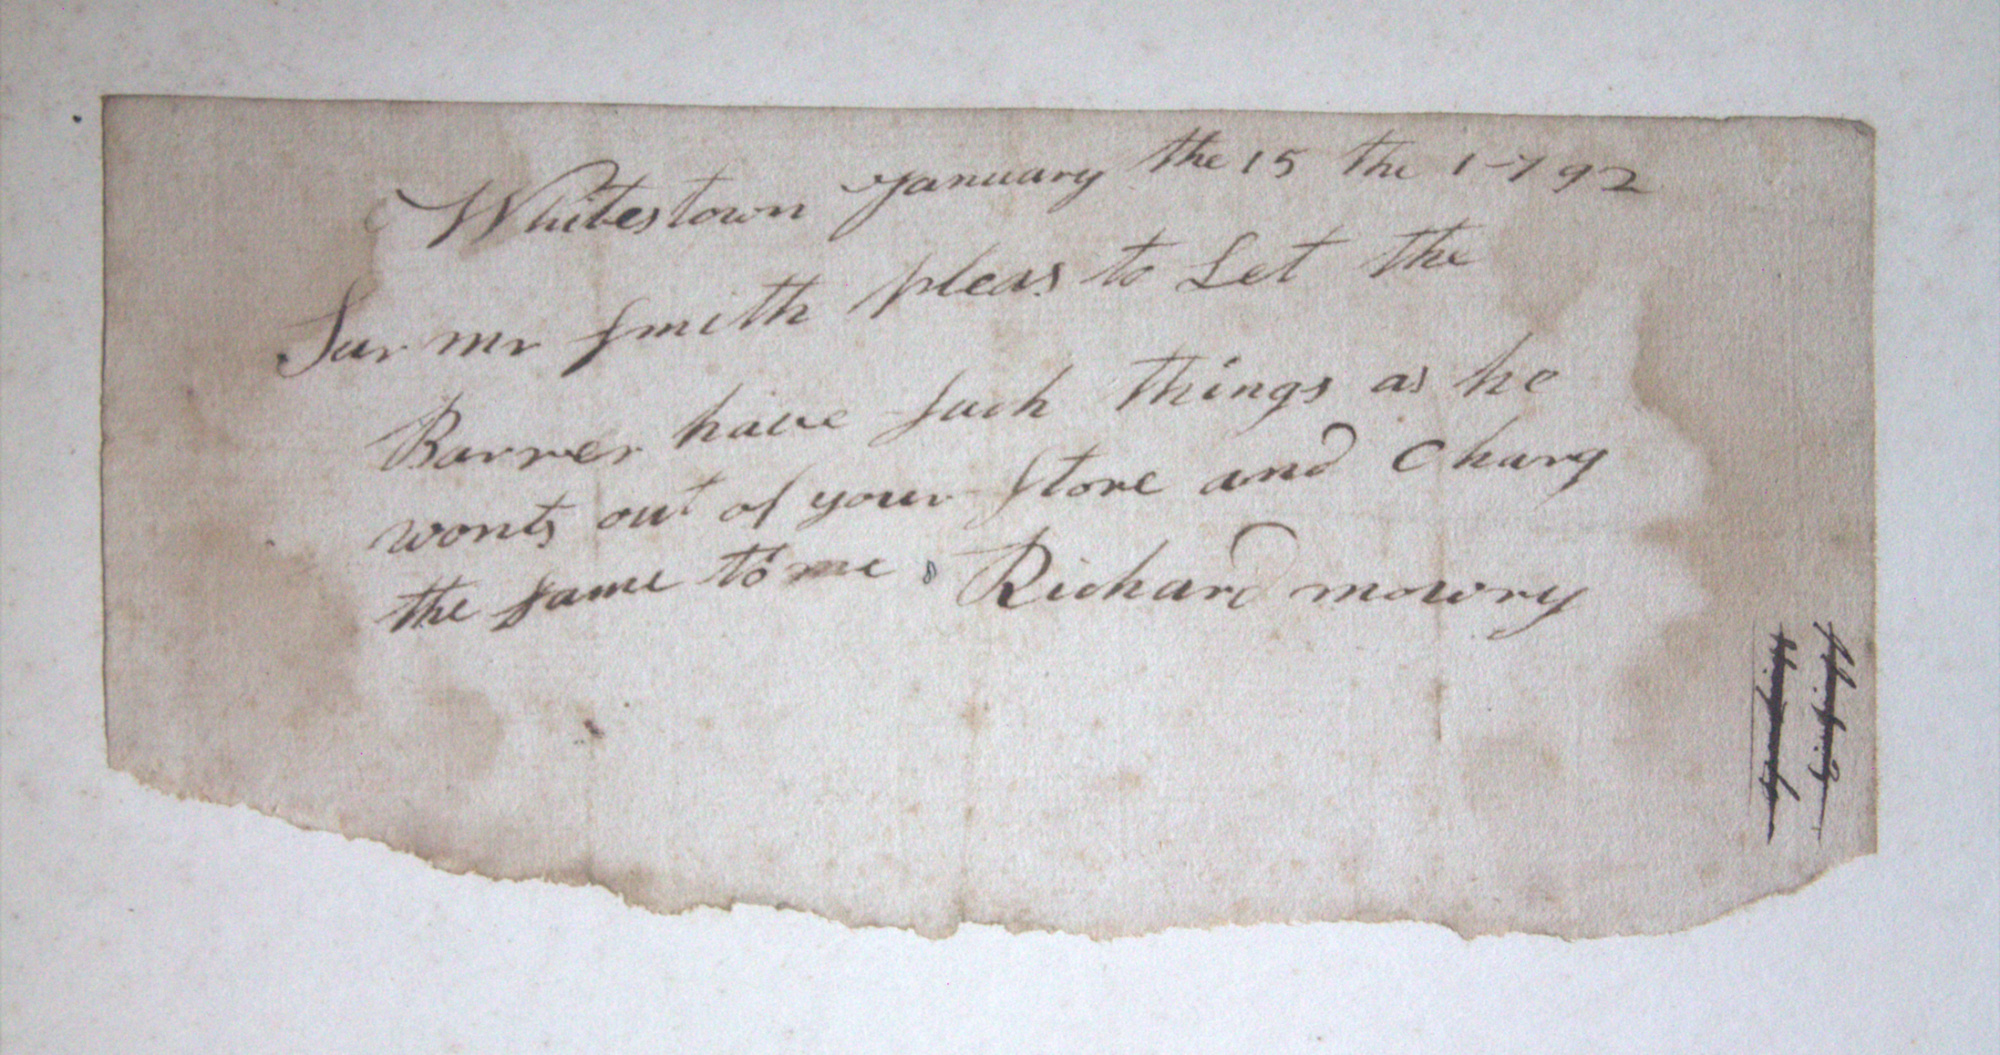 Whitestown January the 15 the 1792
Sur mr Smith pleas to Let the
Barrer have Such things as he
wonts out of your Store and Charg
the Same to me. Richard mowry